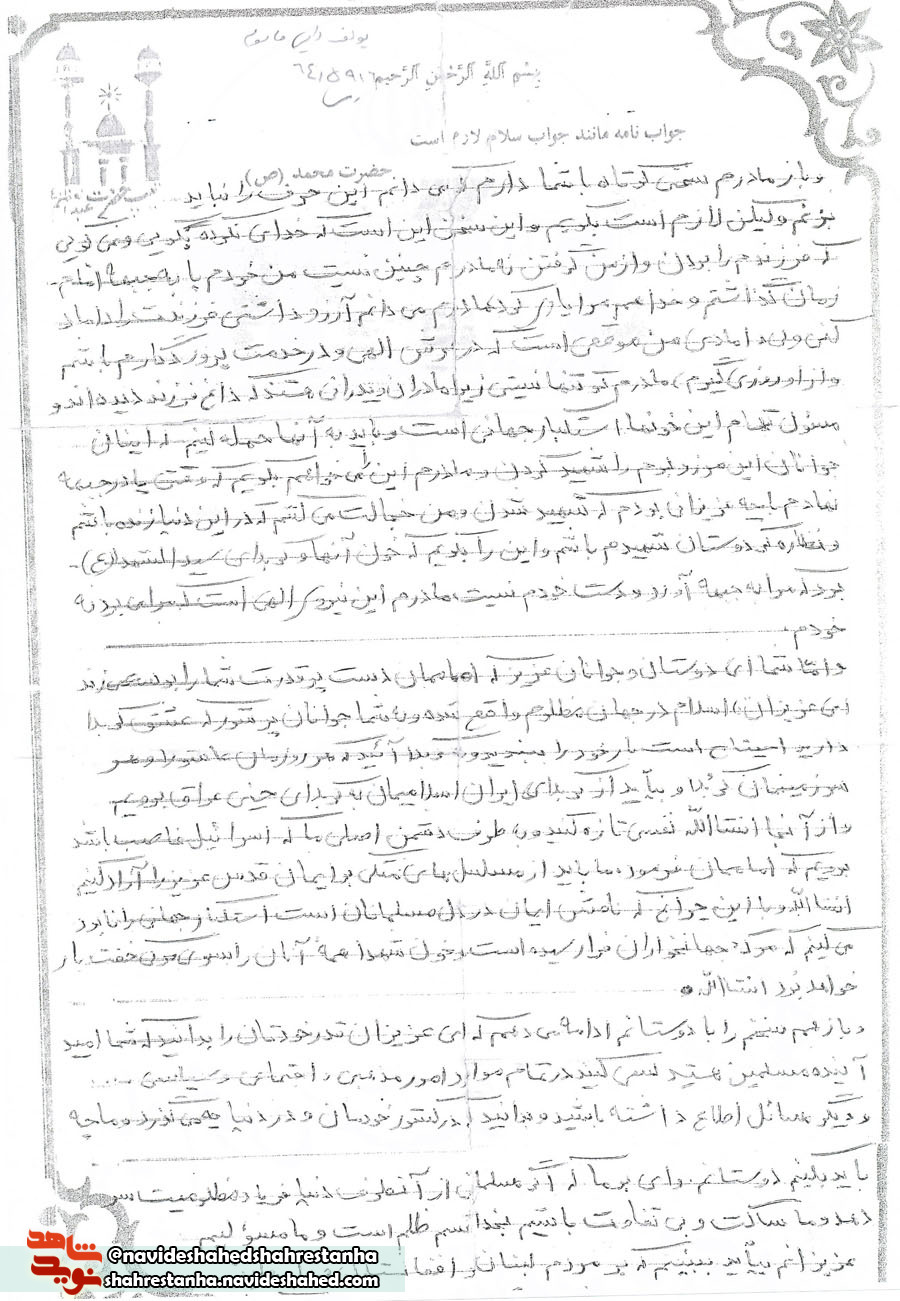 بسم الله الرحمن الرحیم ۶۴/۵/۹۱۶
جواب نامه مانند جواب سلام لازم است
حضرت محمد (ص)
و باز مادرم سخنی کوتاه با شما دارم که می دانم این حرف را نباید
بزنم ولیکن لازم است بگویم و این سخن این است که خدای نکرده بگویی و می گویی
که فرزندم را بردن و از من گرفتن نه مادرم چنین نیست من خودم پا به جبهه امام
زمان گذاشتم و خدا هم مرا یاری کرد مادرم می دانم آرزو داشتی فرزندت را داماد
کنی ولی دامادی من موقعی است که در عرش الهی و در خدمت پروردگارم باشم
و از او روزی گیرم، مادرم تو تنها نیستی زیرا مادران و پدرانی هستند که داغ فرزند دیده اند و
مسئول تمام این خونها استکبار جهانی است و باید به آنها حمله کنیم که اینان
جوانان این مرز و بوم را شهید کردن و مادرم این را می خواهم بگویم که وقتی پا در جبهه
نهادم با چه عزیزانی بودم که شهید شدن و من خجالت می کشم که در این دنیا زنده باشم
و نظاره گر دوستان شهیدم باشم و این را بگویم که خون آنها و کربلای سید الشهدا (ع)
بود که مرا به جبهه آورد و دست خودم نیست، مادرم این نیروی الهی است که مرا می برد نه
خودم.
و اما شما ای دوستان و جوانان عزیز که امامان دست پر قدرت شما را بوسه می زند
ای عزیزان، اسلام در جهانی مظلوم واقع شده و به شما جوانان پر شور که عشق کربلا
دارید احتیاج است بار خود را ببندید و به کربلا آئید که هر روزمان عاشورا و هر
سرزمینمان کربلا و بیاید از کربلای ایران اسلامیمان به کربلای خینی عراق برویم
و از آنجا انشاالله نفسی تازه کنید و به طرف دشمن اصلی ما که اسرائیل غاصب باشد
برویم که امامان فرمود، ما باید از مسلسل های متکی بر ایمان قدس عزیز را آزاد کنیم
انشاالله و با این حرارتیکه نامش ایمان در دل مسلمانان است استکبار جهانی را نابود
می کنیم که مرگ جهانخواران فرا رسیده است و خون شهدا همه آنان را بسوی مرگ خفت بار
خواهد برد انشاالله.
و باز هم سخنم را با دوستانم ادامه می دهم که ای عزیزان قدر خودتان را بدانید که شما امید
آینده مسلمین هستید سعی کنید در تمام موارد امور مذهبی، اجتماعی و سیاسی ....
و دیگر مسائل اطلاع داشته باشید و بدانید که در کشور خودمان و در دنیا چه می گذرد و ما چه
باید بکنیم دوستانم. وای بر ما که اگر مسلمانی از آنطرف دنیا فریاد مظلومیت سر
دهد و ما ساکت و بی تفاوت باشیم بخدا قسم ظلم است و ما مسئولیم
عزیزانم بیاید ببینیم که بر مردم لبنان و افغانستان
شاهد
نوید
@navideshahedshahrestanha
shahrestanha.navideshahed.com